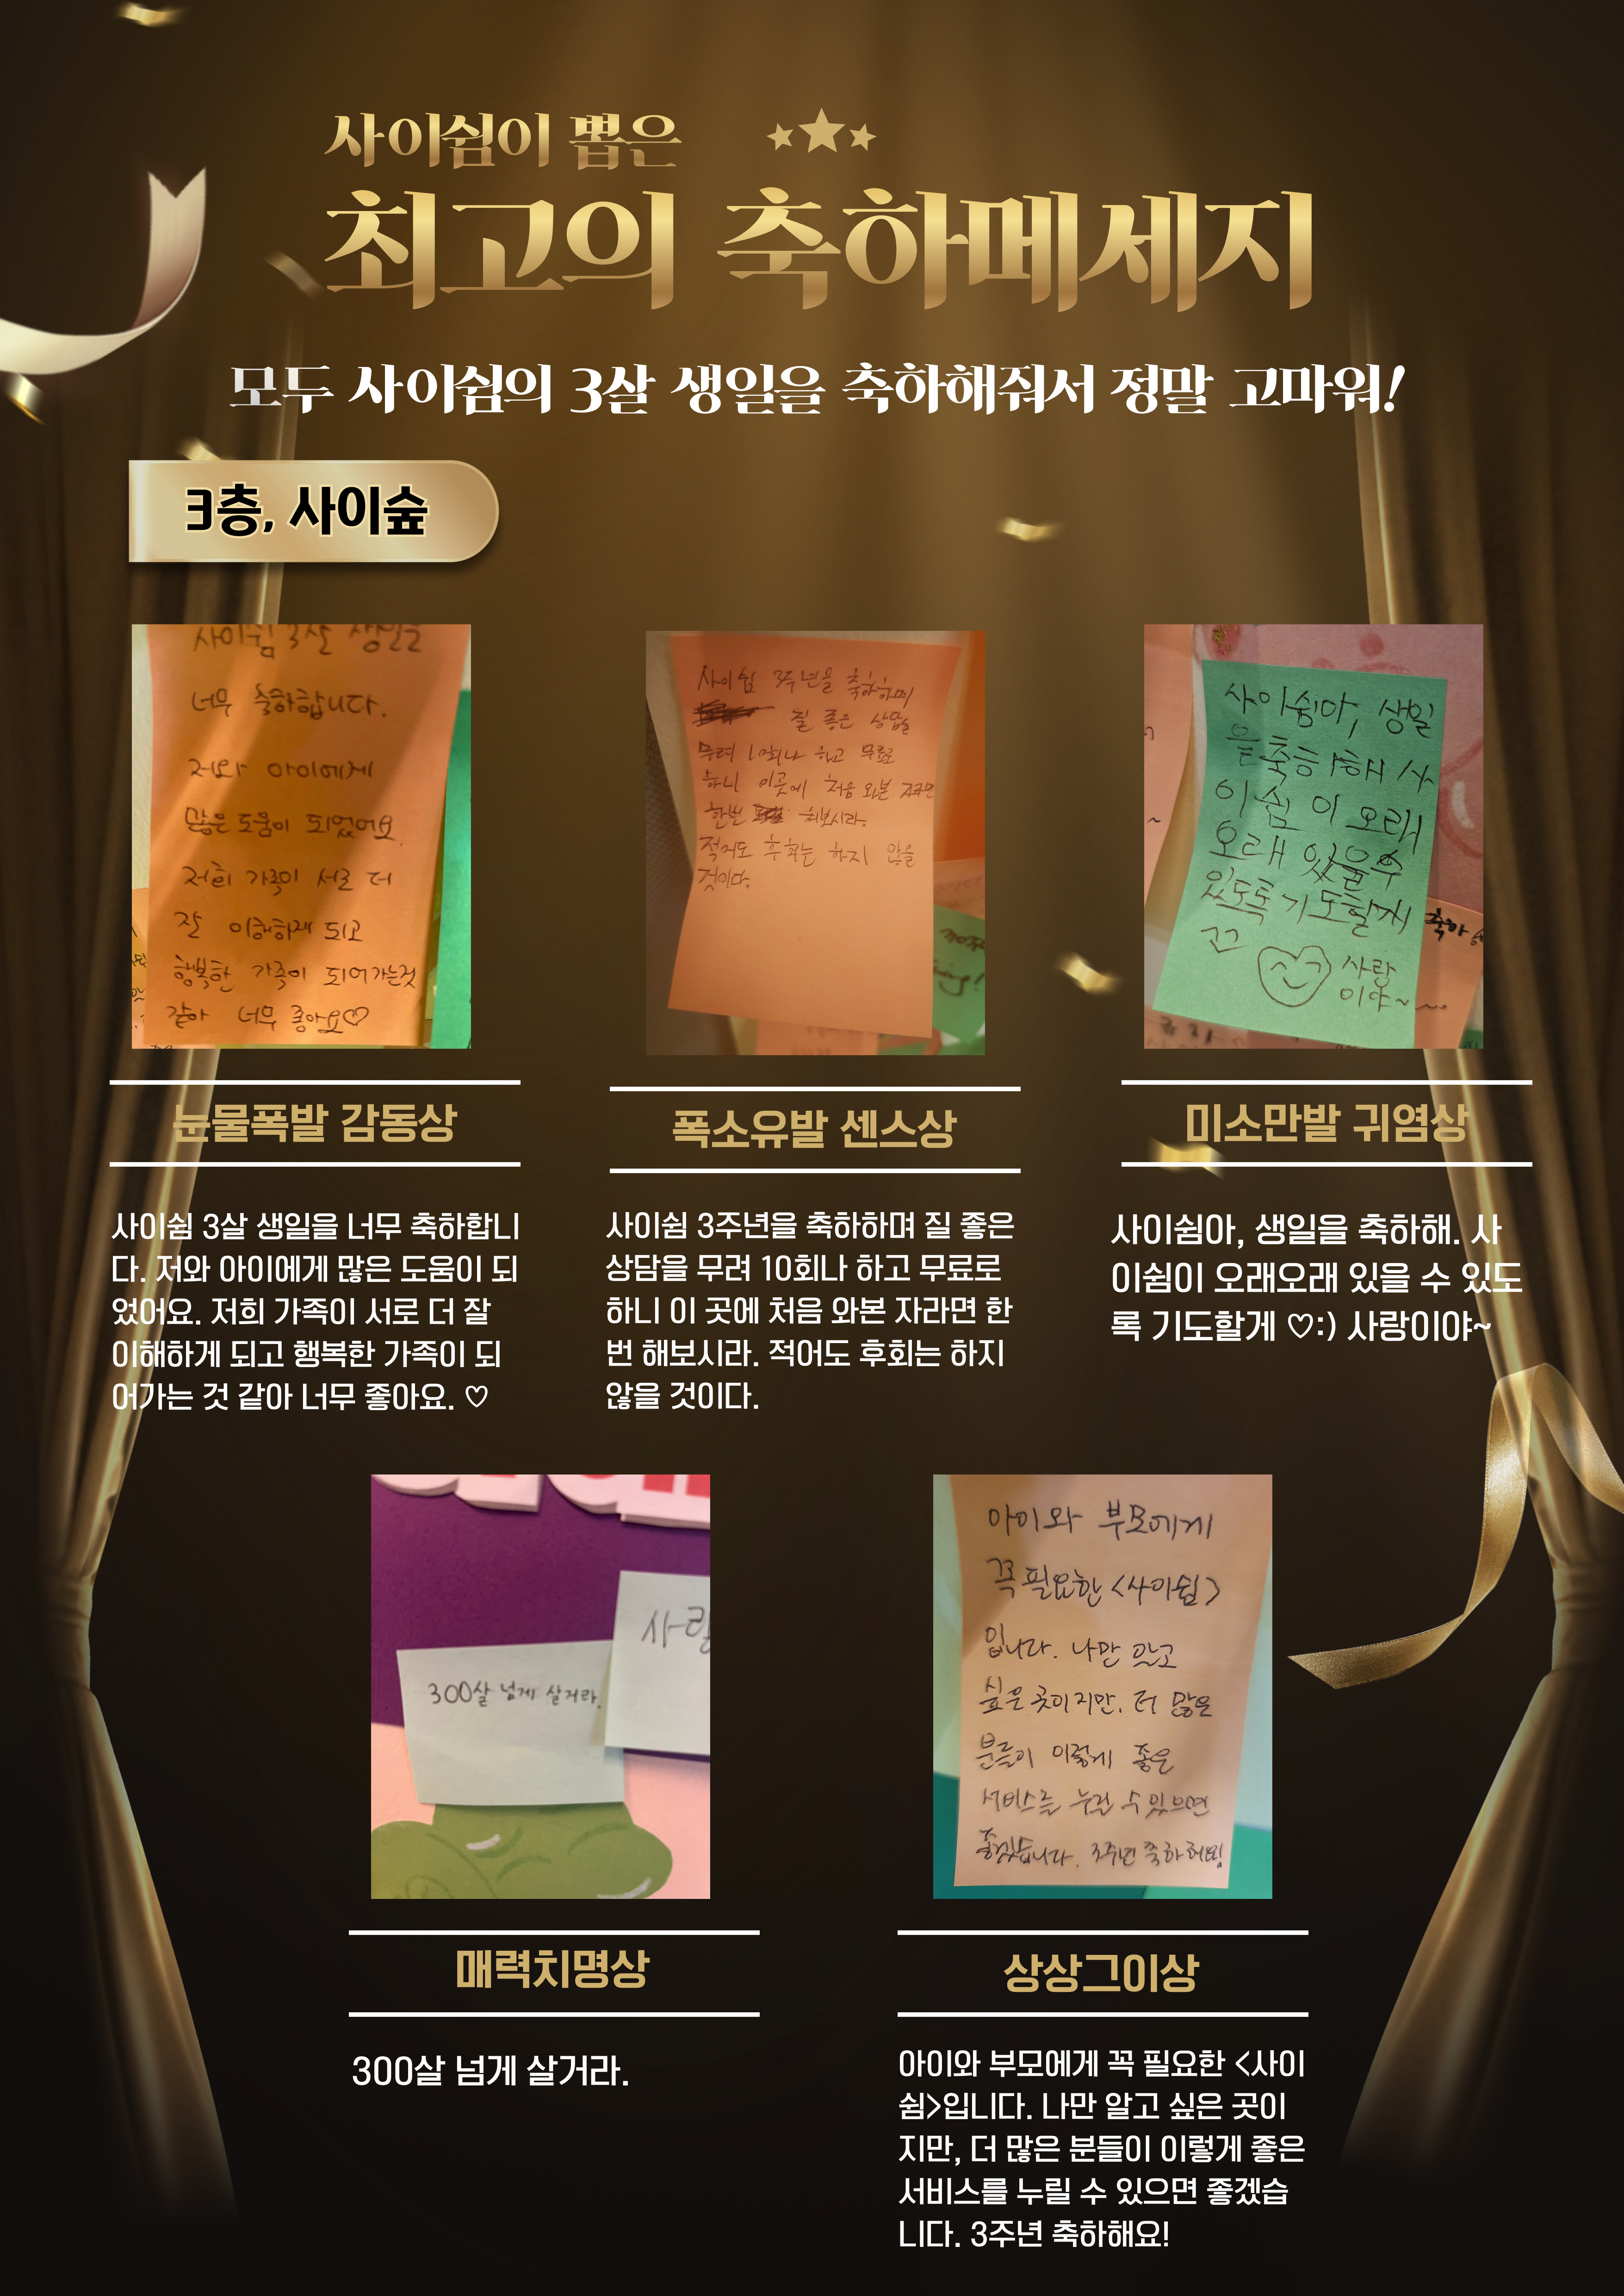 사이쉼이 뽑은
최고의 축하메세지
모두 사이쉼의 3살 생일을 축하해줘서 정말 고마워!
3층, 사이숲
사이쉼 3살 생일을
너무 축하합니다.
저와 아이에게
많은 도움이 되었어요.
저희 가족이 서로 더
잘 이해하게 되고
행복한 가족이 되어가는것
같아 너무 좋아요♡
눈물폭발 감동상
사이쉼 3살 생일을 너무 축하합니
다. 저와 아이에게 많은 도움이 되
었어요. 저희 가족이 서로 더 잘
이해하게 되고 행복한 가족이 되
어가는 것 같아 너무 좋아요. ♡
사이쉼 3주년을 축하하며
질 좋은 상담을
무려 10회나 하고 무료로
하니 이곳에 처음 와본 자라면
한번 해보시라.
적어도 후회는 하지 않을
것이다.
폭소유발 센스상
사이쉼 3주년을 축하하며 질 좋은
상담을 무려 10회나 하고 무료로
하니 이 곳에 처음 와본 자라면 한
번 해보시라. 적어도 후회는 하지
않을 것이다.
사이쉼아, 생일
을 축하해 사
이쉼이 오래
오래 있을 수
있도록 기도할게
사랑
이야~
축하
미소만발 귀염상
사이쉼아, 생일을 축하해. 사
이쉼이 오래오래 있을 수 있도
록 기도할게 ♡:) 사랑이야~
300살 넘게 살거라.
사랑
매력치명상
300살 넘게 살거라.
아이와 부모에게
꼭 필요한 <사이쉼>
입니다. 나만 알고
싶은 곳이지만, 더 많은
분들이 이렇게 좋은
서비스를 누릴 수 있으면
좋겠습니다. 3주년 축하해요!
상상그이상
아이와 부모에게 꼭 필요한 <사이
쉼>입니다. 나만 알고 싶은 곳이
지만, 더 많은 분들이 이렇게 좋은
서비스를 누릴 수 있으면 좋겠습
니다. 3주년 축하해요!